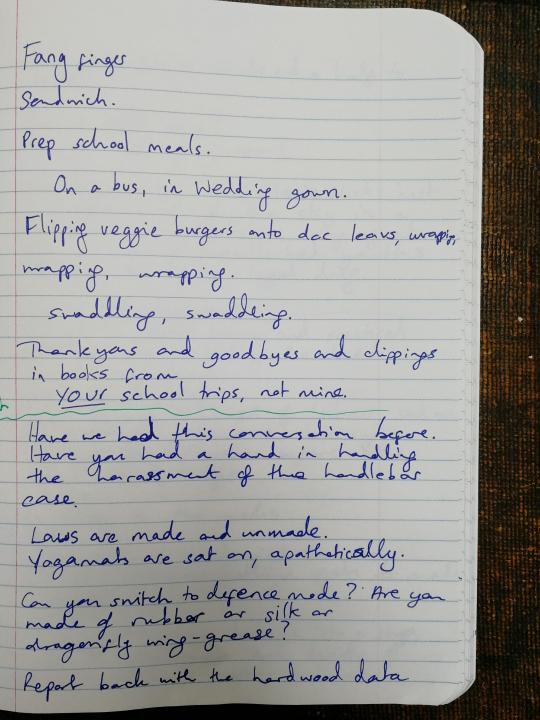 Fang finger
Sandwich.
Prep school meals.
On a bus, in Wedding gown.
Flipping veggie burgers onto doc leavs, wrapping,
wrapping, wrapping.
swaddling, swaddling.
Thankyous and goodbyes and clippings
in books from
YOUR school trips, not mine.
Have we had this conversation before.
Have you had a hand in handling
the harassment of the handlebar
case.
Laws are made and unmade.
Yogamats are sat on, apathetically.
Can you switch to defence mode? Are you
made of rubber or silk or
dragonfly wing-grease?
Report back with the hardwood data